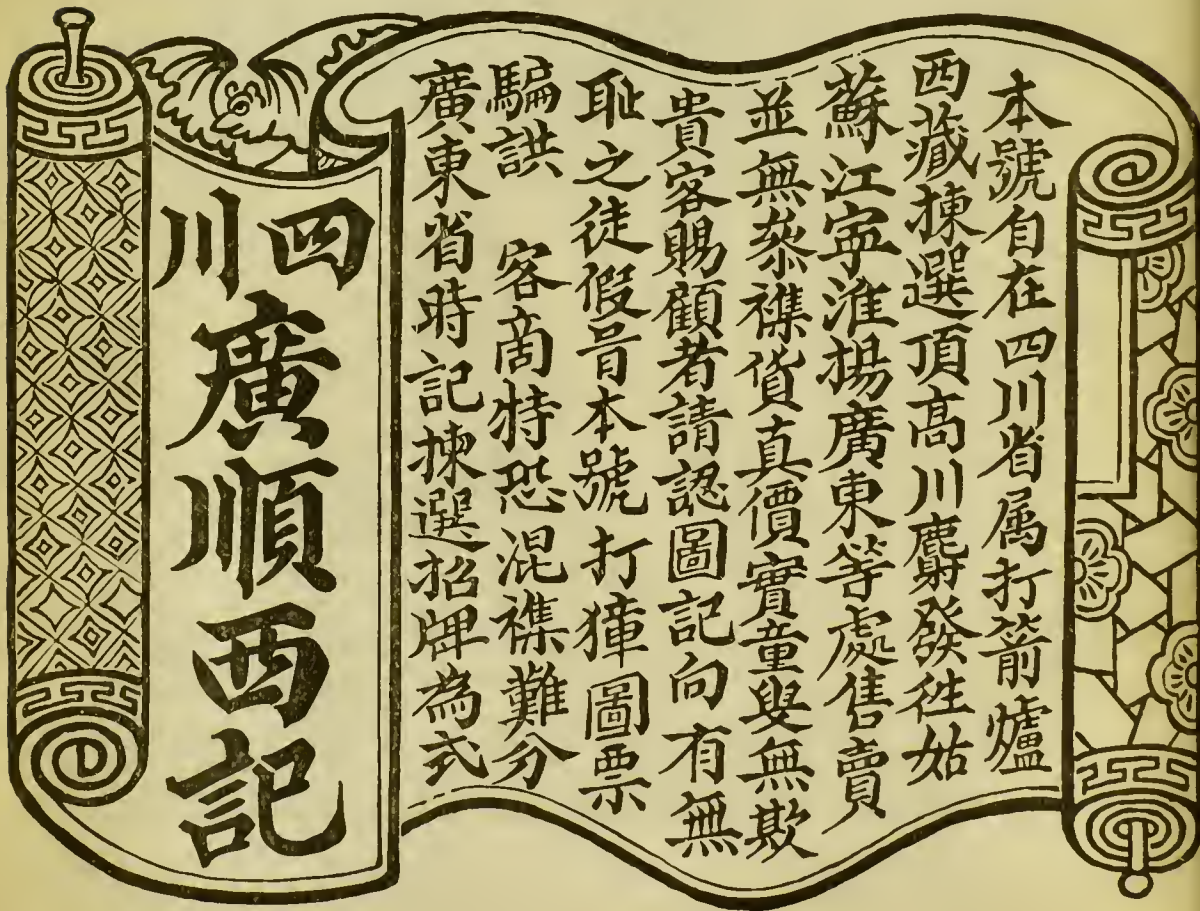 本號自在四川省属打箭爐
西藏揀選頂高川麝發徃姑
蘇江寕淮揚廣東等處售賣
並無叅襍貨真價實童叟無欺
貴客賜顧者請認圖記向有無
恥之徒假冐本號打獐圖票
騙誆 客商特恐混襍難分
廣東省時記揀選招牌為式
四川
廣順西記